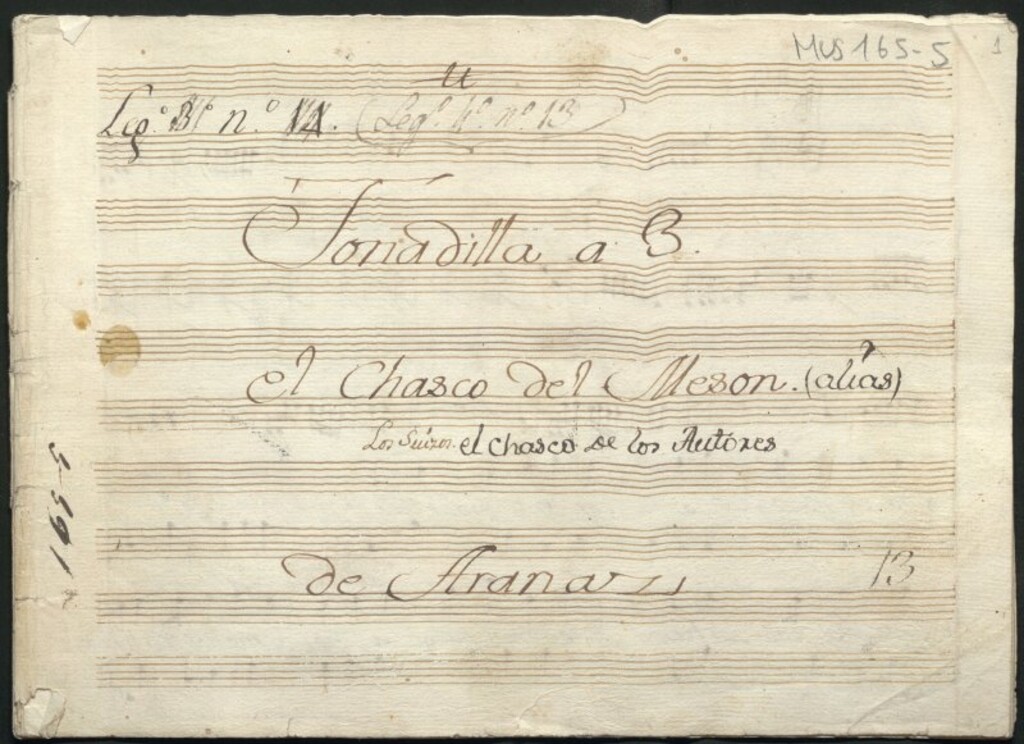 MUS 165-5
1
Leg.º n.º (Leg.º 4.º n.º 13)
Tonadilla a 3.
el Chasco del Meson. (alias)
Los Suizos. el chasco de los Autores
de Aranaz
13
165-5